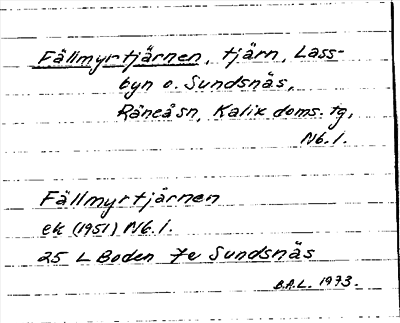 Fällmyrtjärnen, tjärn, Lass-
byn o. Sundsnäs,
Råneå sn, Kalix doms. tg,
Nb. l.
Fällmyrtjärnen
ek (1951) Nb. l.
25 L Boden 7e Sundsnäs
B.A.L. 1973.